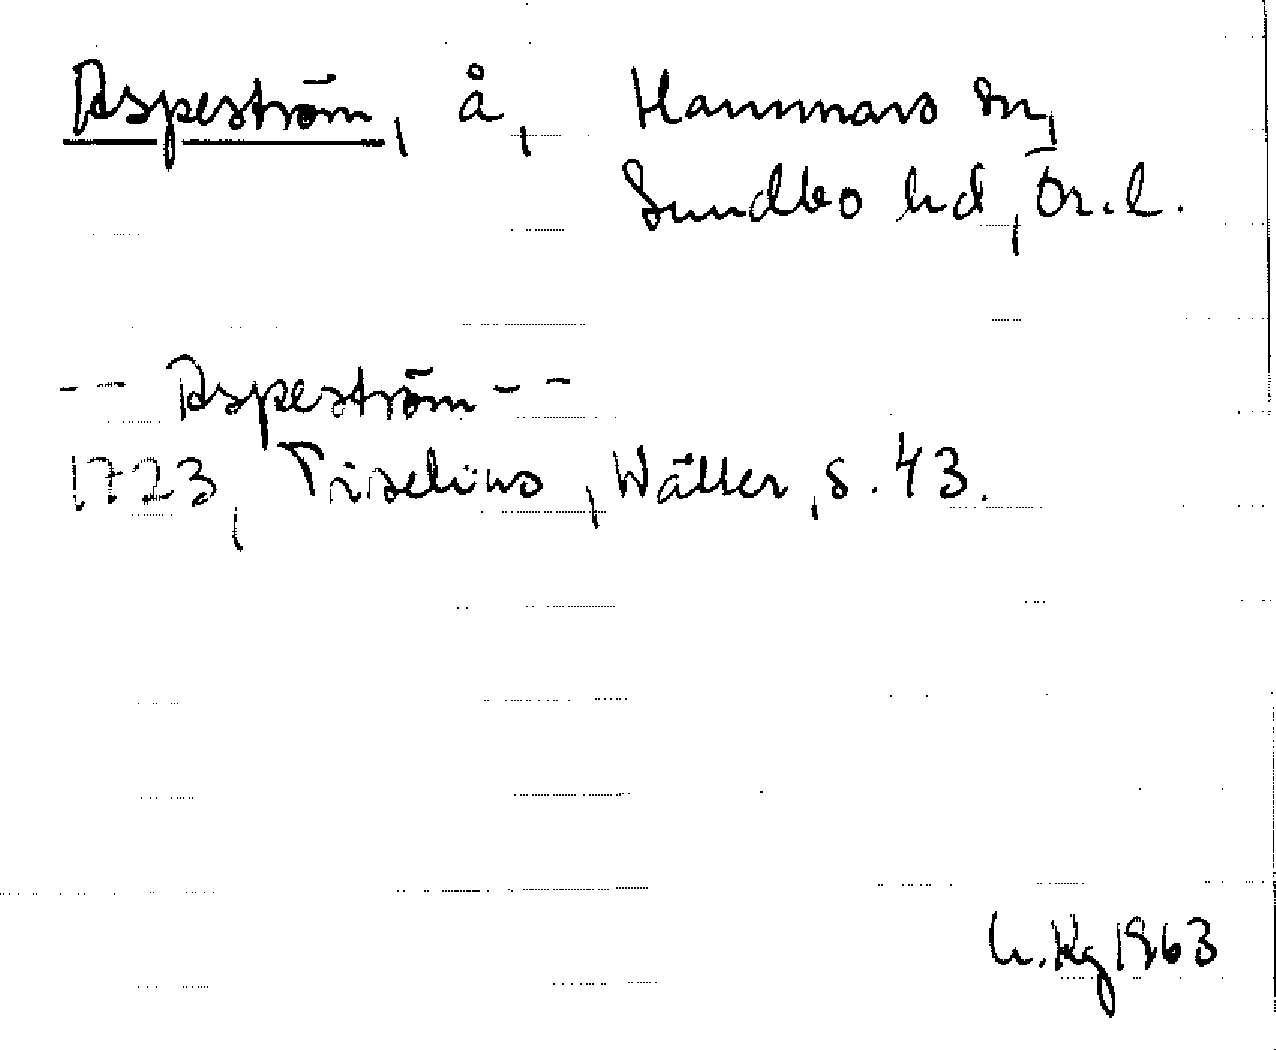 Aspeström, å, Hammars sn,
Sundbo hd, Ör.l.
-- Aspeström --
1723, Tiselius, Wätter, s. 43.
Kg 1963